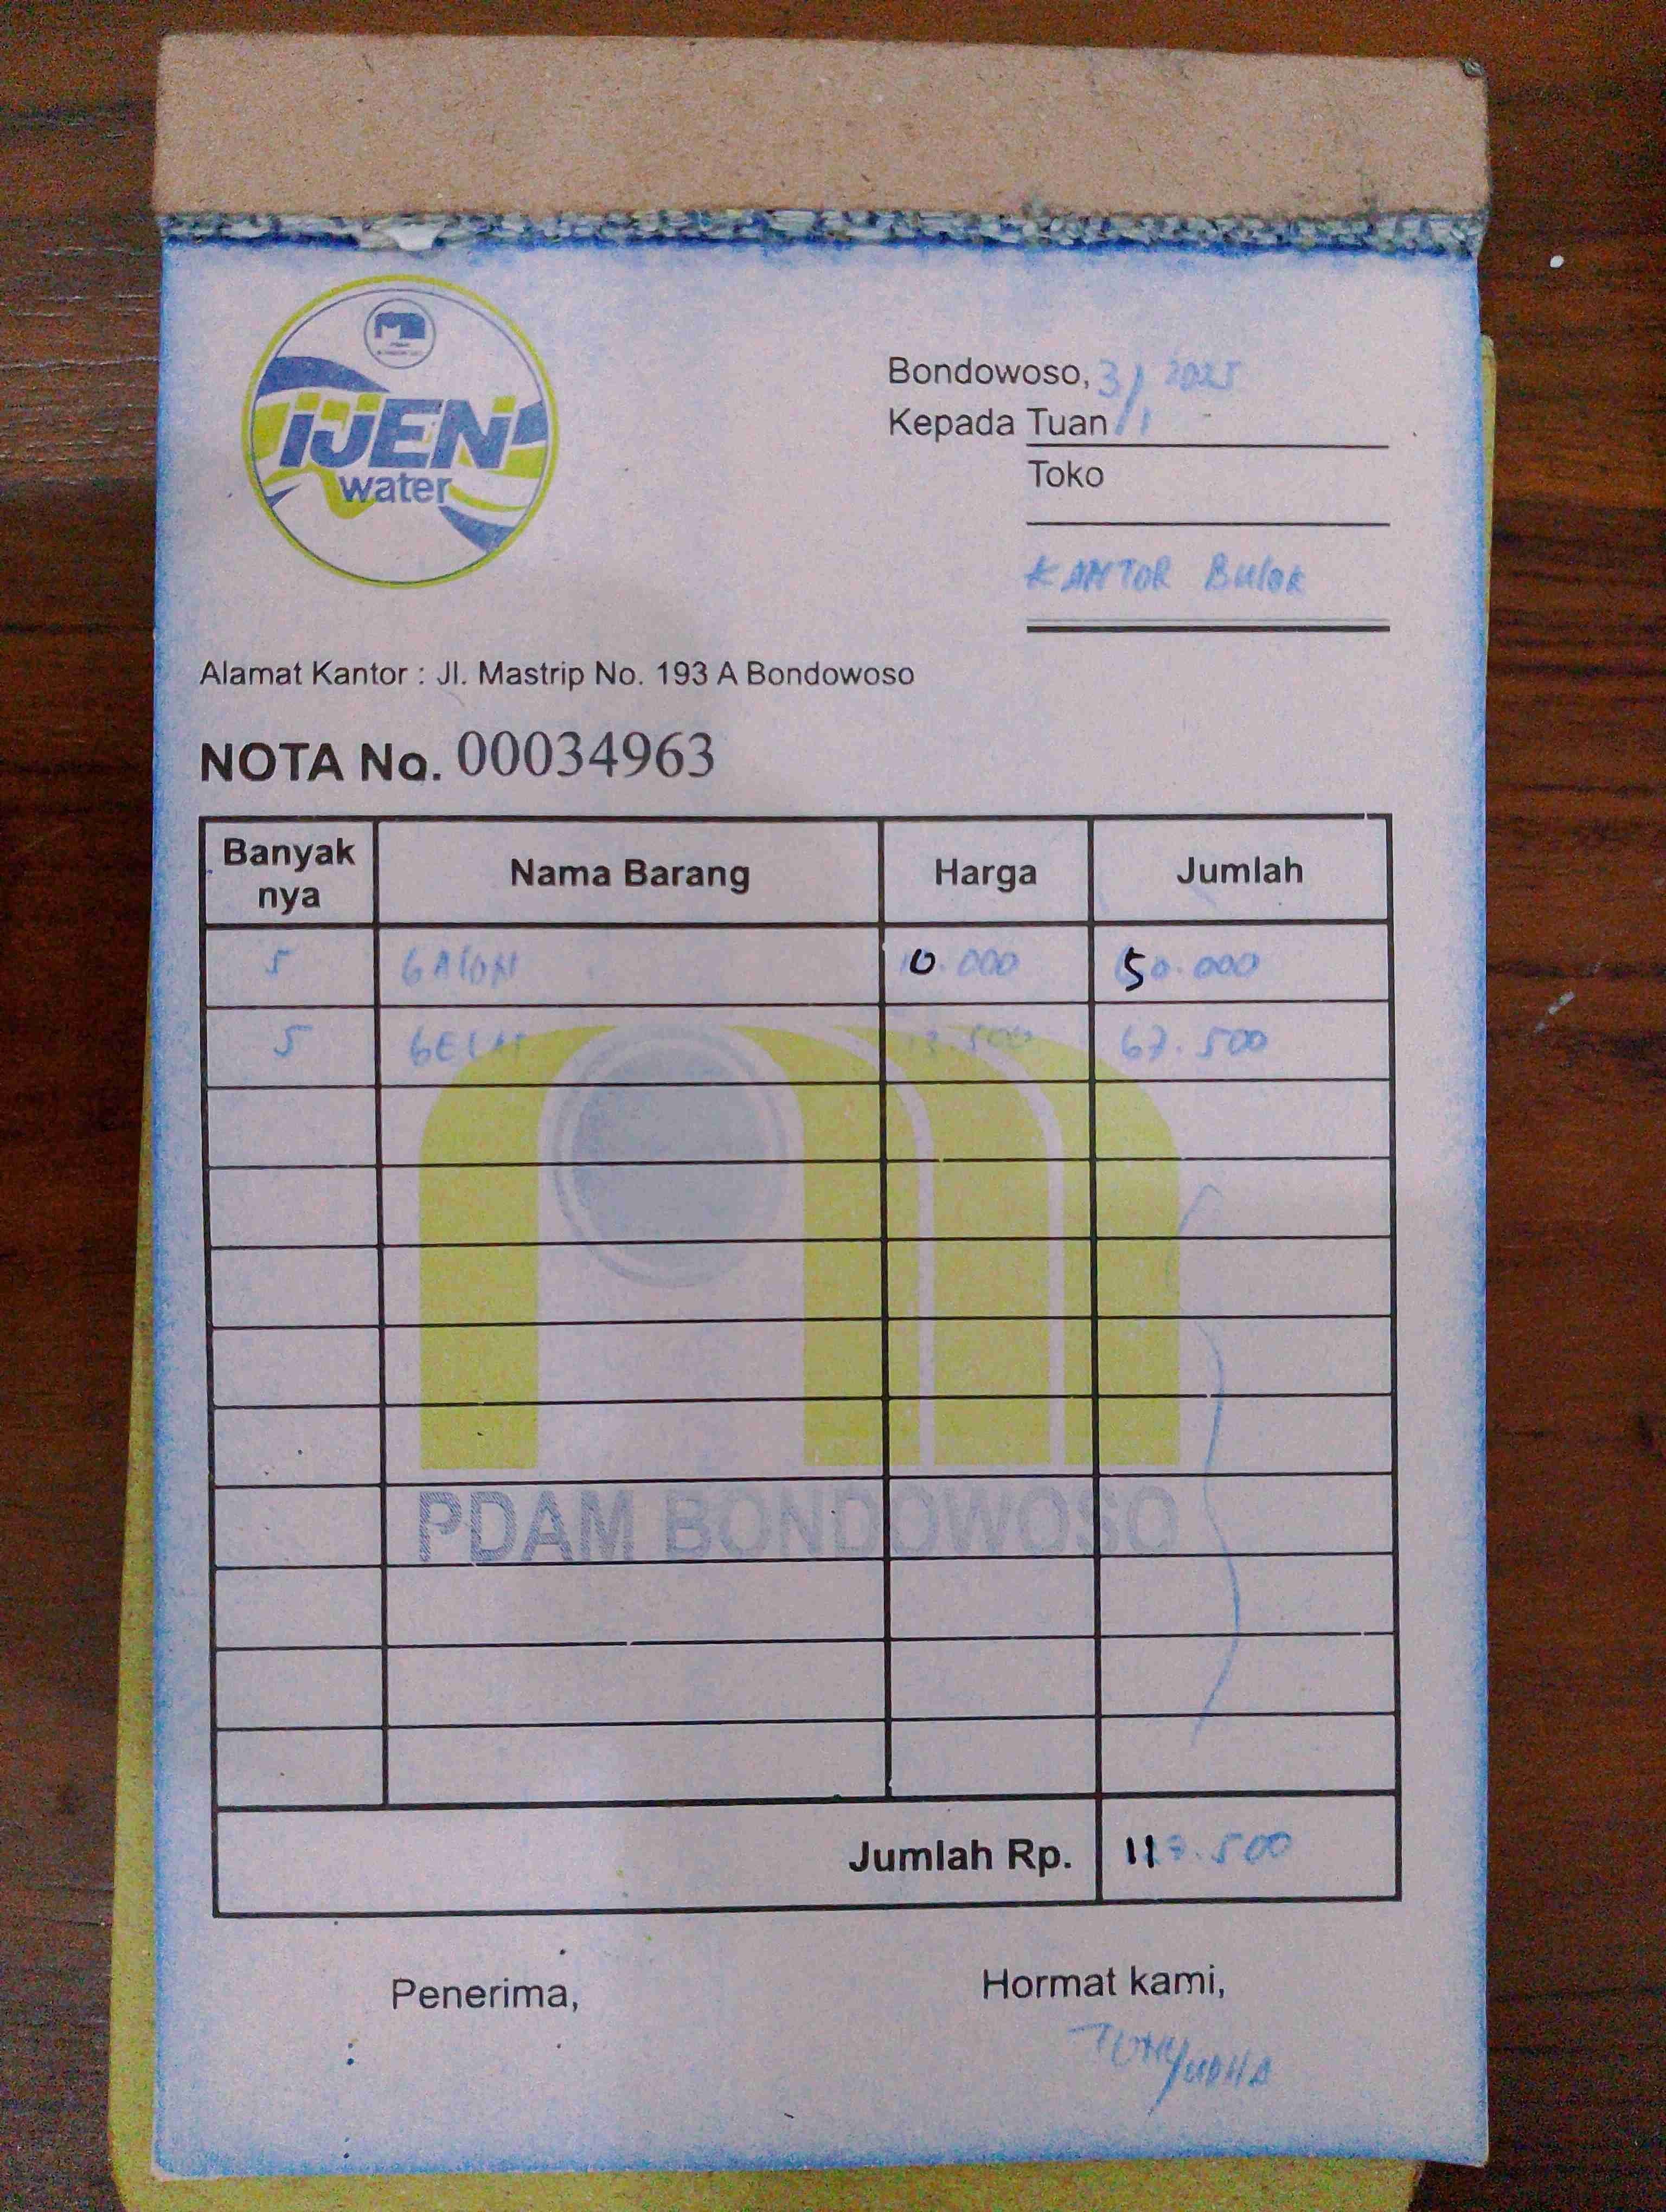 IJEN
water
Bondowoso, 3/1 2025
Kepada Tuan
Toko
KANTOR Bulog
Alamat Kantor : Jl. Mastrip No. 193 A Bondowoso
NOTA No. 00034963
Banyak nya Nama Barang Harga Jumlah
5 GAlON 10.000 50.000
5 GELAS 13.500 67.500
PDAM BONDOWOSO
Jumlah Rp. 117.500
Penerima, Hormat kami,
YUDHA